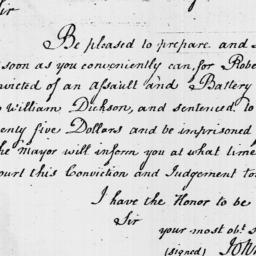 Sir
Be pleased to prepare and
soon as you conveniently can, for Robe
victed of an assault and Battery
William Dickson, and sentenced to
enty five Dollars and be imprisoned
he Mayor will inform you at what time
ourt this Conviction and Judgement to
I have the Honor to be
Sir
your most obt. s
(signed) John